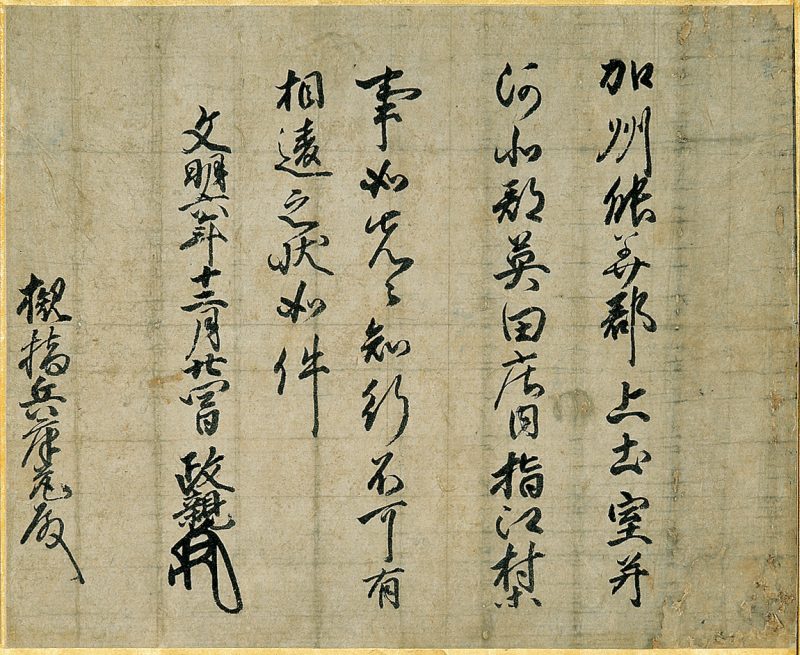 加州能美郡上土室并
河北郡英田庄内指江村
事如先々知行不可有
相違之状如件
文明六年十二月廿四日 政親
槻橋兵庫允殿